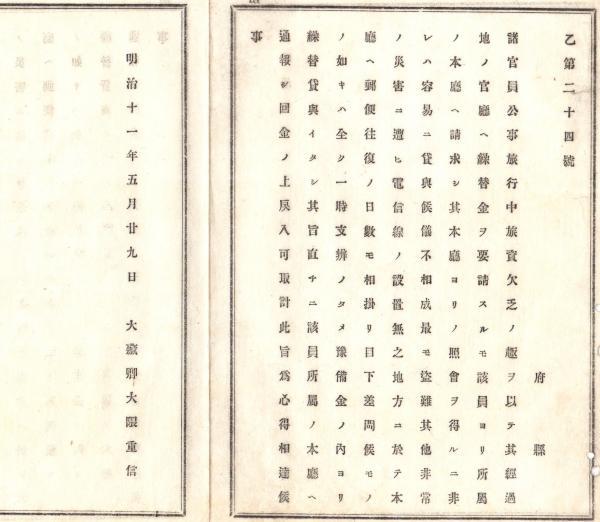 乙第二十四號
府縣
諸官員公事旅行中旅費欠乏ノ趣ヲ以テ其經過
地ノ官廳ヘ繰替金ヲ要請スルモ該員ヨリ所屬
ノ本廳ヘ請求シ其本廳ヨリノ照會ヲ得ルニ非
レハ容易ニ貸與候儀不相成最モ盜難其他非常
ノ災害ニ遭ヒ電信線ノ設置無之地方ニ於テ本
廳ヘ郵便往復ノ日數モ相掛リ目下差閊候モノ
ノ如キハ全ク一時支辨ノタメ豫備金ノ内ヨリ
繰替貸與イタシ其旨直チニ該員所屬ノ本廳ヘ
通報シ回金ノ上戾入可取計此旨爲心得相達候
事
明治十一年五月廿九日　大藏卿大隈重信